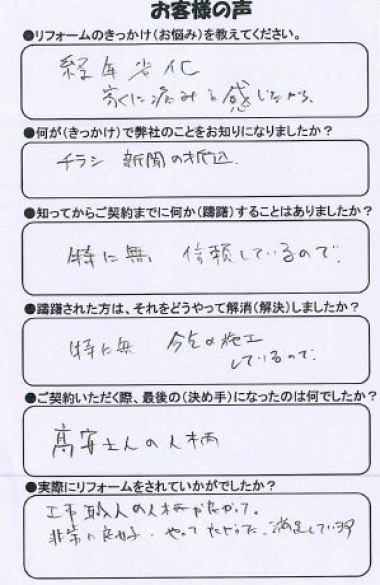 お客様の声
●リフォームのきっかけ(お悩み)を教えてください。
経年劣化
家に痛みを感じたから、
●何が(きっかけ)で弊社のことをお知りになりましたか？
チラシ 新聞の折込
●知ってからご契約までに何か(躊躇)することはありましたか？
特に無、信頼しているので.
●躊躇された方は、それをどうやって解消(解決)しましたか？
特に無
しているので.
●ご契約いただく際、最後の(決め手)になったのは何でしたか？
高安さんの人柄
●実際にリフォームをされていかがでしたか？
工事職人の人柄が良かって。
非常に良好. やってよかった. 満足している